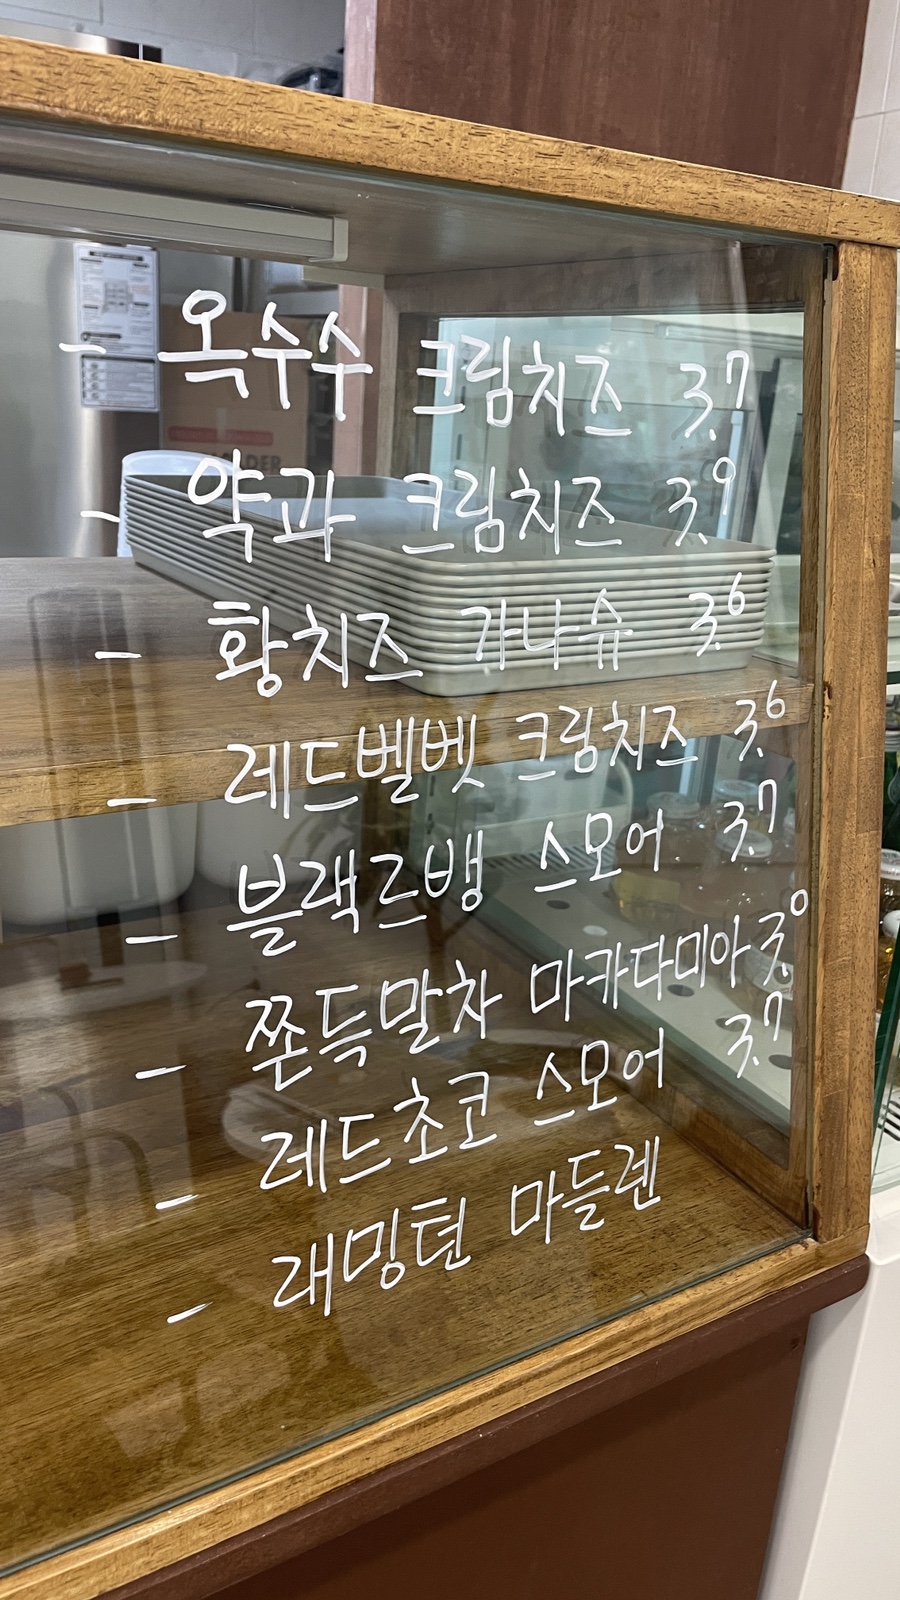 - 옥수수 크림치즈 3.7
- 약과 크림치즈 3.9
- 황치즈 가나슈 3.6
- 레드벨벳 크림치즈 3.6
- 블랙르뱅 스모어 3.7
- 쫀득말차 마카다미아 3.9
- 레드초코 스모어 3.7
- 래밍턴 마들렌